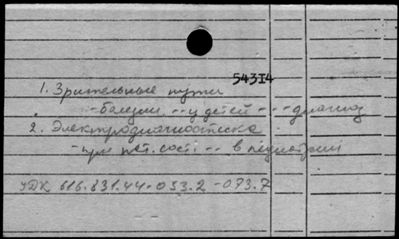 54314
1. Зрительные пути
- болезни -- у детей -- - диагноз
2. Электродиагностика
- при пат. сост. -- в педиатрии
УДК 616.831.44-053.2-073.7